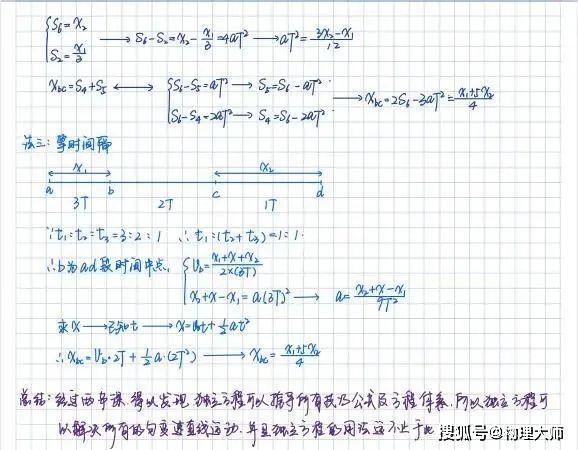 {S₆=x₂ S₂=x₁/3 ⟶ S₆-S₂=x₂-x₁/3=4aT² ⟶ aT²=(3x₂-x₁)/12
x_bc=S₄+S₅ ⟷ {S₆-S₅=aT² ⟶ S₅=S₆-aT² S₆-S₄=2aT² ⟶ S₄=S₆-2aT² ⟶ x_bc=2S₆-3aT²=(x₁+5x₂)/4
法三:等时间隔
x₁ x₂
a b c d
3T 2T 1T
∵t₁:t₂:t₃=3:2:1 ∴t₁:(t₂+t₃)=1:1
∴b为ad段时间中点, {v_b=(x₁+x+x₂)/(2×(3T))
x₂+x-x₁=a(3T)² ⟶ a=(x₂+x-x₁)/9T²
求x ⟶ 已知t ⟶ x=v₀t+½at²
∴x_bc=v_b·2T+½a·(2T)² ⟶ x_bc=(x₁+5x₂)/4
总结:经过的步骤,得以发现,独立方程可以指导所有技巧公式及方程体系,所以独立方程可
以解决所有的匀变速直线运动,并且独立方程的用法还不止于此
搜狐号@物理大师